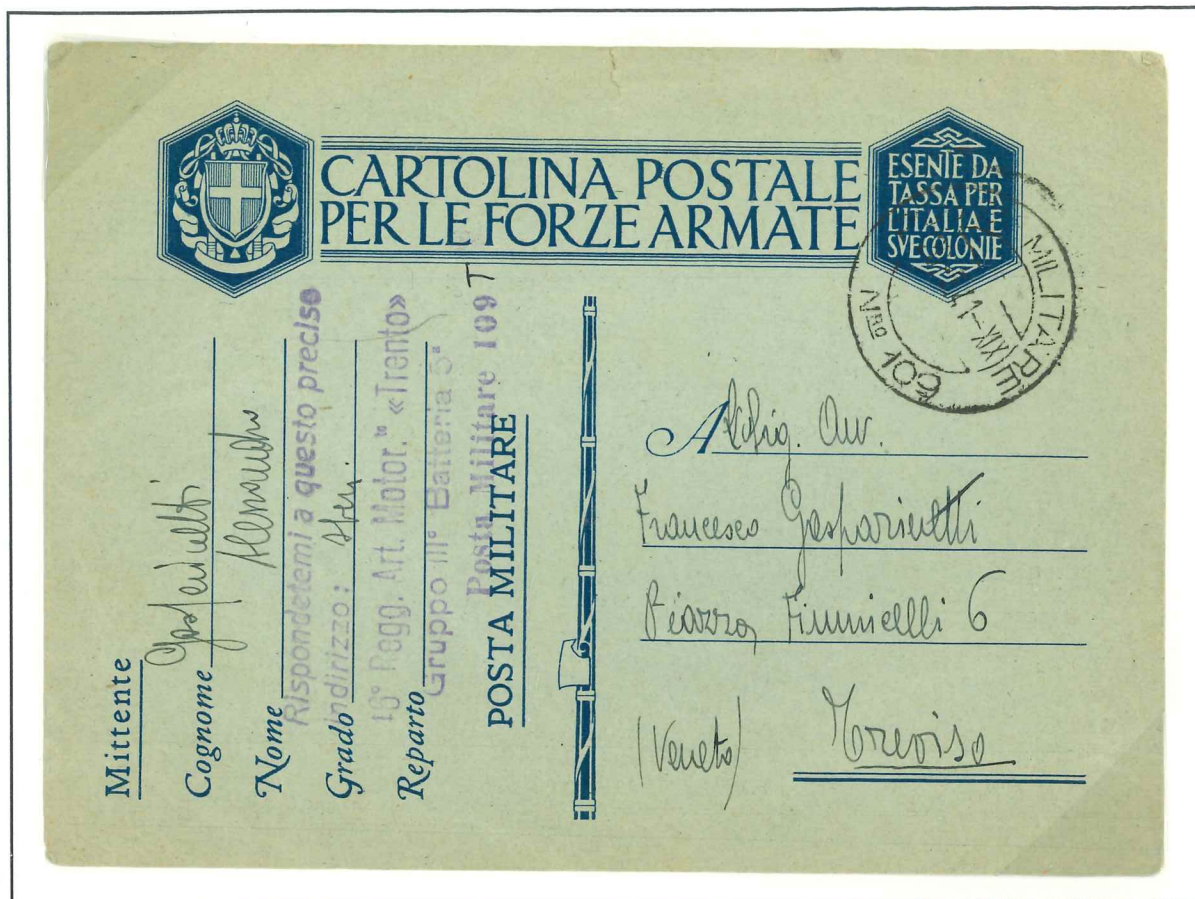 CARTOLINA POSTALE
PER LE FORZE ARMATE
ESENTE DA
TASSA PER
L'ITALIA E
SVE COLONIE
MILITARE
NRO 109
41-XIX
Mittente
Cognome
Nome
Rispondetemi a questo preciso
indirizzo:
Grado
16° Regg. Art. Motor. "«Trento»
Reparto
Gruppo III° Batteria 5ª
Posta Militare 109 T
POSTA MILITARE
A Sig. Avv.
Francesco Gasparinetti
Piazza Fiumicelli 6
(Veneto) Treviso